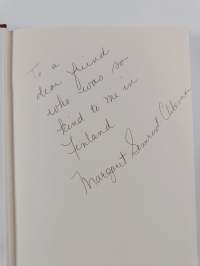 To a
dear friend
who was so
kind to me in
Finland
Margaret